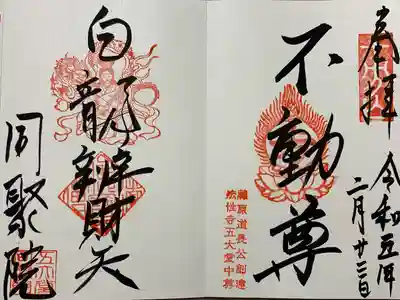 奉拝
令和五年
二月廿三日
不動尊
藤原道長公創建
法性寺五大堂中尊
白龍辨財天
同聚院